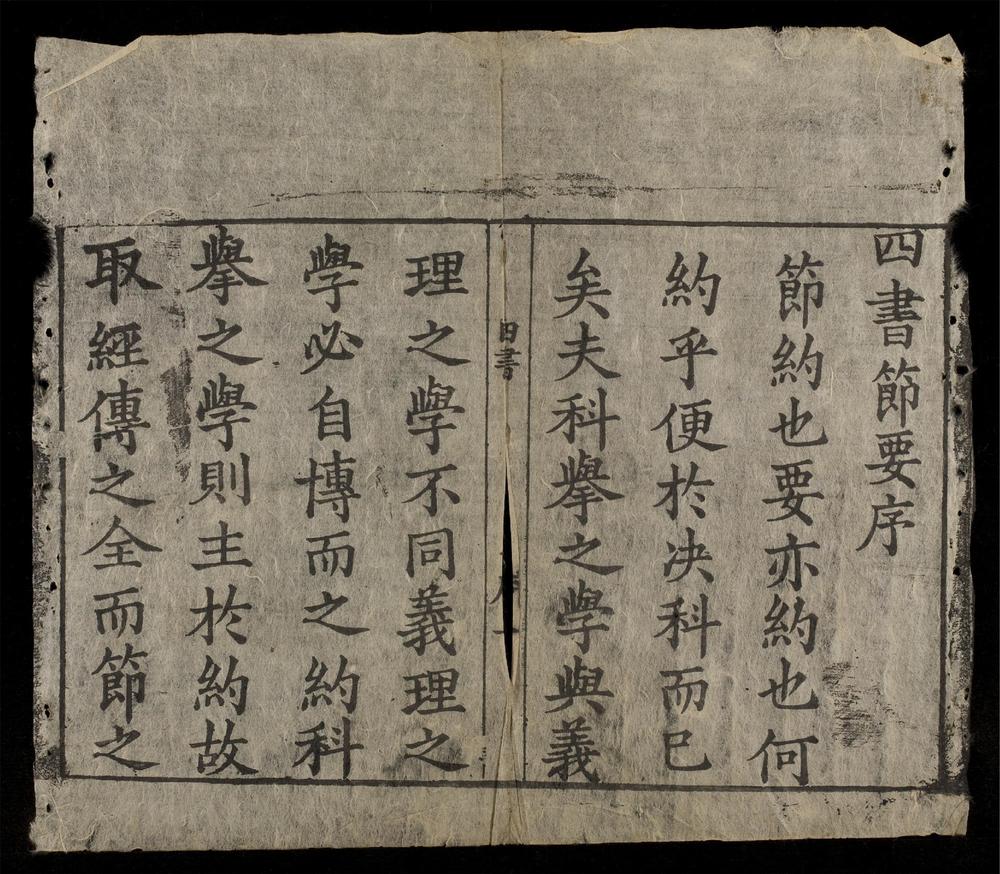 四書節要序
節約也要亦約也何
約乎便於决科而已
矣夫科擧之學與義
四書
序 一
理之學不同義理之
學必自博而之約科
擧之學則主於約故
取經傳之全而節之